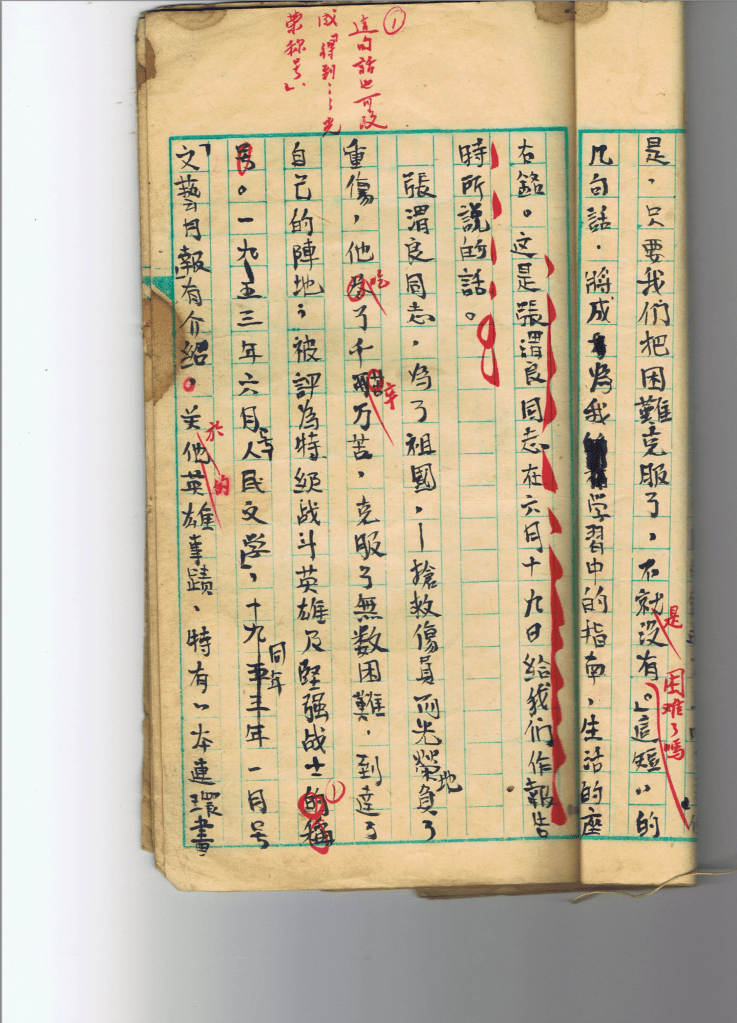 是，只要我们把困難克服了，不就没有。」這短〻的
是
困难了嗎
几句話，將成為我学習中的指南、生活的座
右銘。这是張渭良同志在六月十九日給我们作報告
時所説的話。
張渭良同志，為了祖國，搶救傷員而光榮地負了
重傷，他了千万苦，克服了無数困難，到達了
吃
辛
自己的陣地，被評為特級战斗英雄及堅强战士的稱
①
号。一九五三年六月号人民文学，十九五三年一月号
同年
文藝月報有介紹。关他英雄事蹟，特有一本連環畫
於
的
①
這句話也可改
成「得到……光
荣称号」